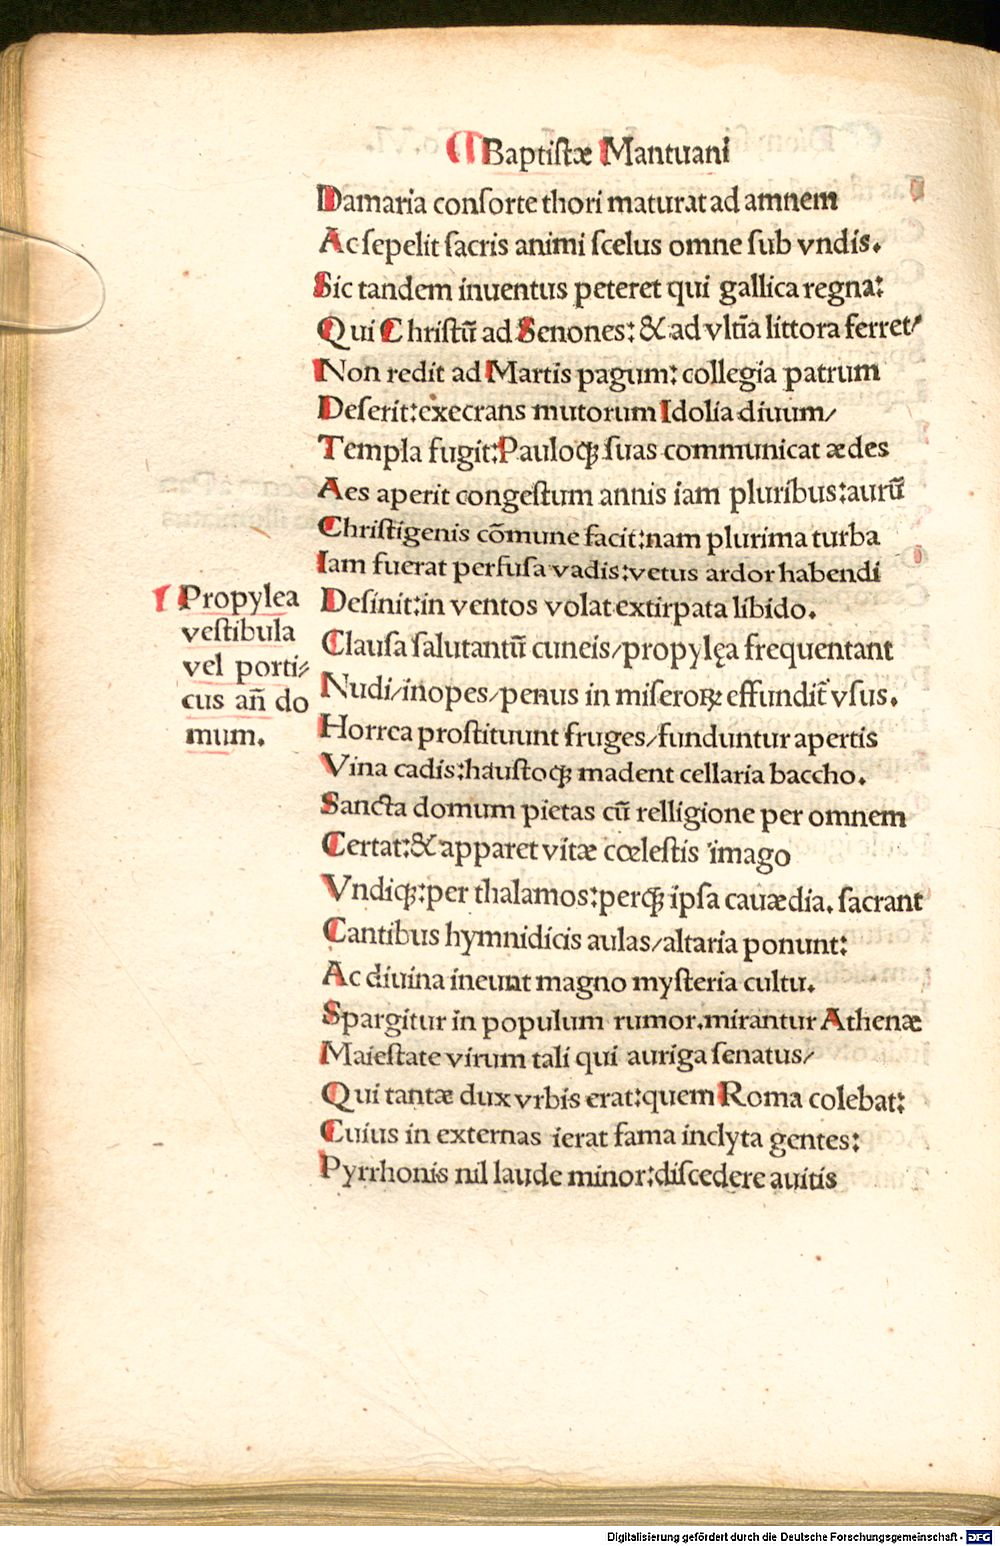 ¶ Baptistæ Mantuani
Damaria conſorte thori maturat ad amnem
Ac ſepelit ſacris animi ſcelus omne ſub vndis.
Sic tandem inuentus peteret qui gallica regna:
Qui Chriſtū ad Senones: & ad vltīa littora ferret/
Non redit ad Martis pagum: collegia patrum
Deſerit: execrans mutorum Idolia diuum/
Templa fugit: Pauloqꝫ ſuas communicat ædes
Aes aperit congeſtum annis iam pluribus: aurū
Chriſtigenis cōmune facit: nam plurima turba
Iam fuerat perfuſa vadis: vetus ardor habendi
Deſinit: in ventos volat extirpata libido.
Clauſa ſalutantū cuneis/ propylęa frequentant
Nudi/ inopes/ penus in miſeroꝝ effundit̃ vſus.
Horrea proſtituunt fruges/ funduntur apertis
Vina cadis: hauſtoqꝫ madent cellaria baccho.
Sancta domum pietas cū relligione per omnem
Certat: & apparet vitæ cœleſtis imago
Vndiqꝫ: per thalamos: perqꝫ ipſa cauædia. ſacrant
Cantibus hymnidicis aulas/ altaria ponunt:
Ac diuina ineunt magno myſteria cultu.
Spargitur in populum rumor. mirantur Athenæ
Maieſtate virum tali qui auriga ſenatus/
Qui tantæ dux vrbis erat: quem Roma colebat:
Cuius in externas ierat fama inclyta gentes:
Pyrrhonis nil laude minor: diſcedere auitis
¶ Propylea
veſtibula
vel porti⸗
cus añ do
mum.
Digitalisierung gefördert durch die Deutsche Forschungsgemeinschaft - DFG